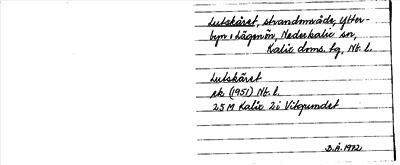 Lutskäret, strandområde, Ytter-
byn o Lägenön, Nederkalix sn,
Kalix doms. tg, Nb l.
Lutskäret
ek (1951) Nb l.
25 M Kalix 2i Vitgrundet
B.Å. 1972